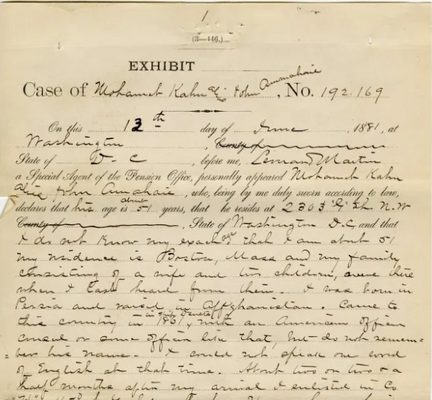 1
(3—446.)
EXHIBIT
Case of Mohamet Kahn alias John Ammahaie, No. 192.169
On this 13th day of June, 1881, at
Washington, County of
State of D. C, before me, Leonard Martin
a Special Agent of the Pension Office, personally appeared Mohamet Kahn
alias John Ammahaie, who, being by me duly sworn according to law,
declares that his age is about 51 years, that he resides at 2303 G St. N. W
County of, State of Washington D. C, and that
I do not know my exact age that I am about 51
my residence is Boston, Mass and my family
consisting of a wife and two children, were there
when I last heard from them. I was born in
Persia and raised in Affghanistan. Came to
this country in 1861, with an American officer
consul or some officer like that, but do not remem-
ber his name. I could not speak one word
of English at that time. About two or two &
half months after my arrival I enlisted in Co